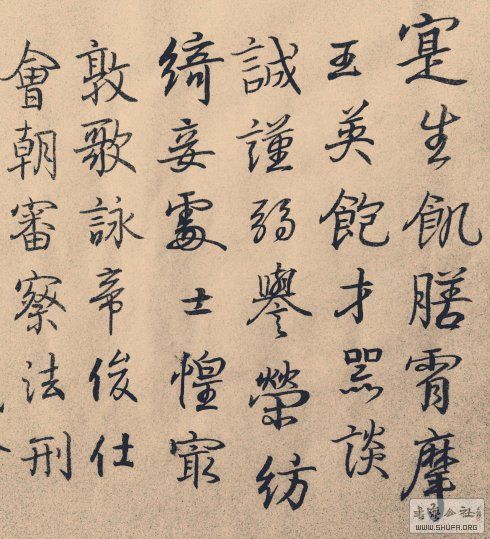 寔生飢膳霄摩
玉英飽才器談
誠謹弱譽榮紡
綺妾處士惶寂
敦歌詠帝俊仕
會朝審察法刑
WWW.SHUFA.ORG